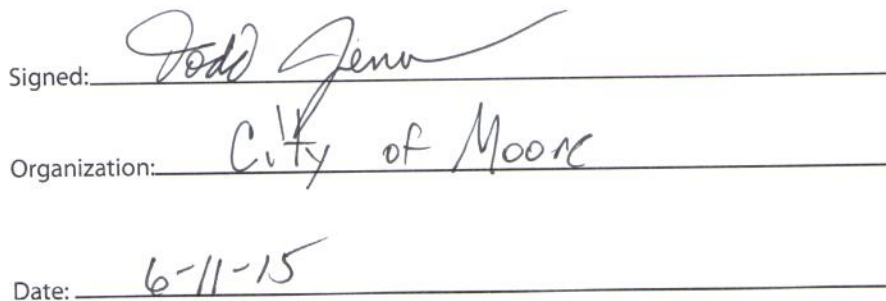 Signed: Todd
Organization: City of Moore
Date: 6-11-15